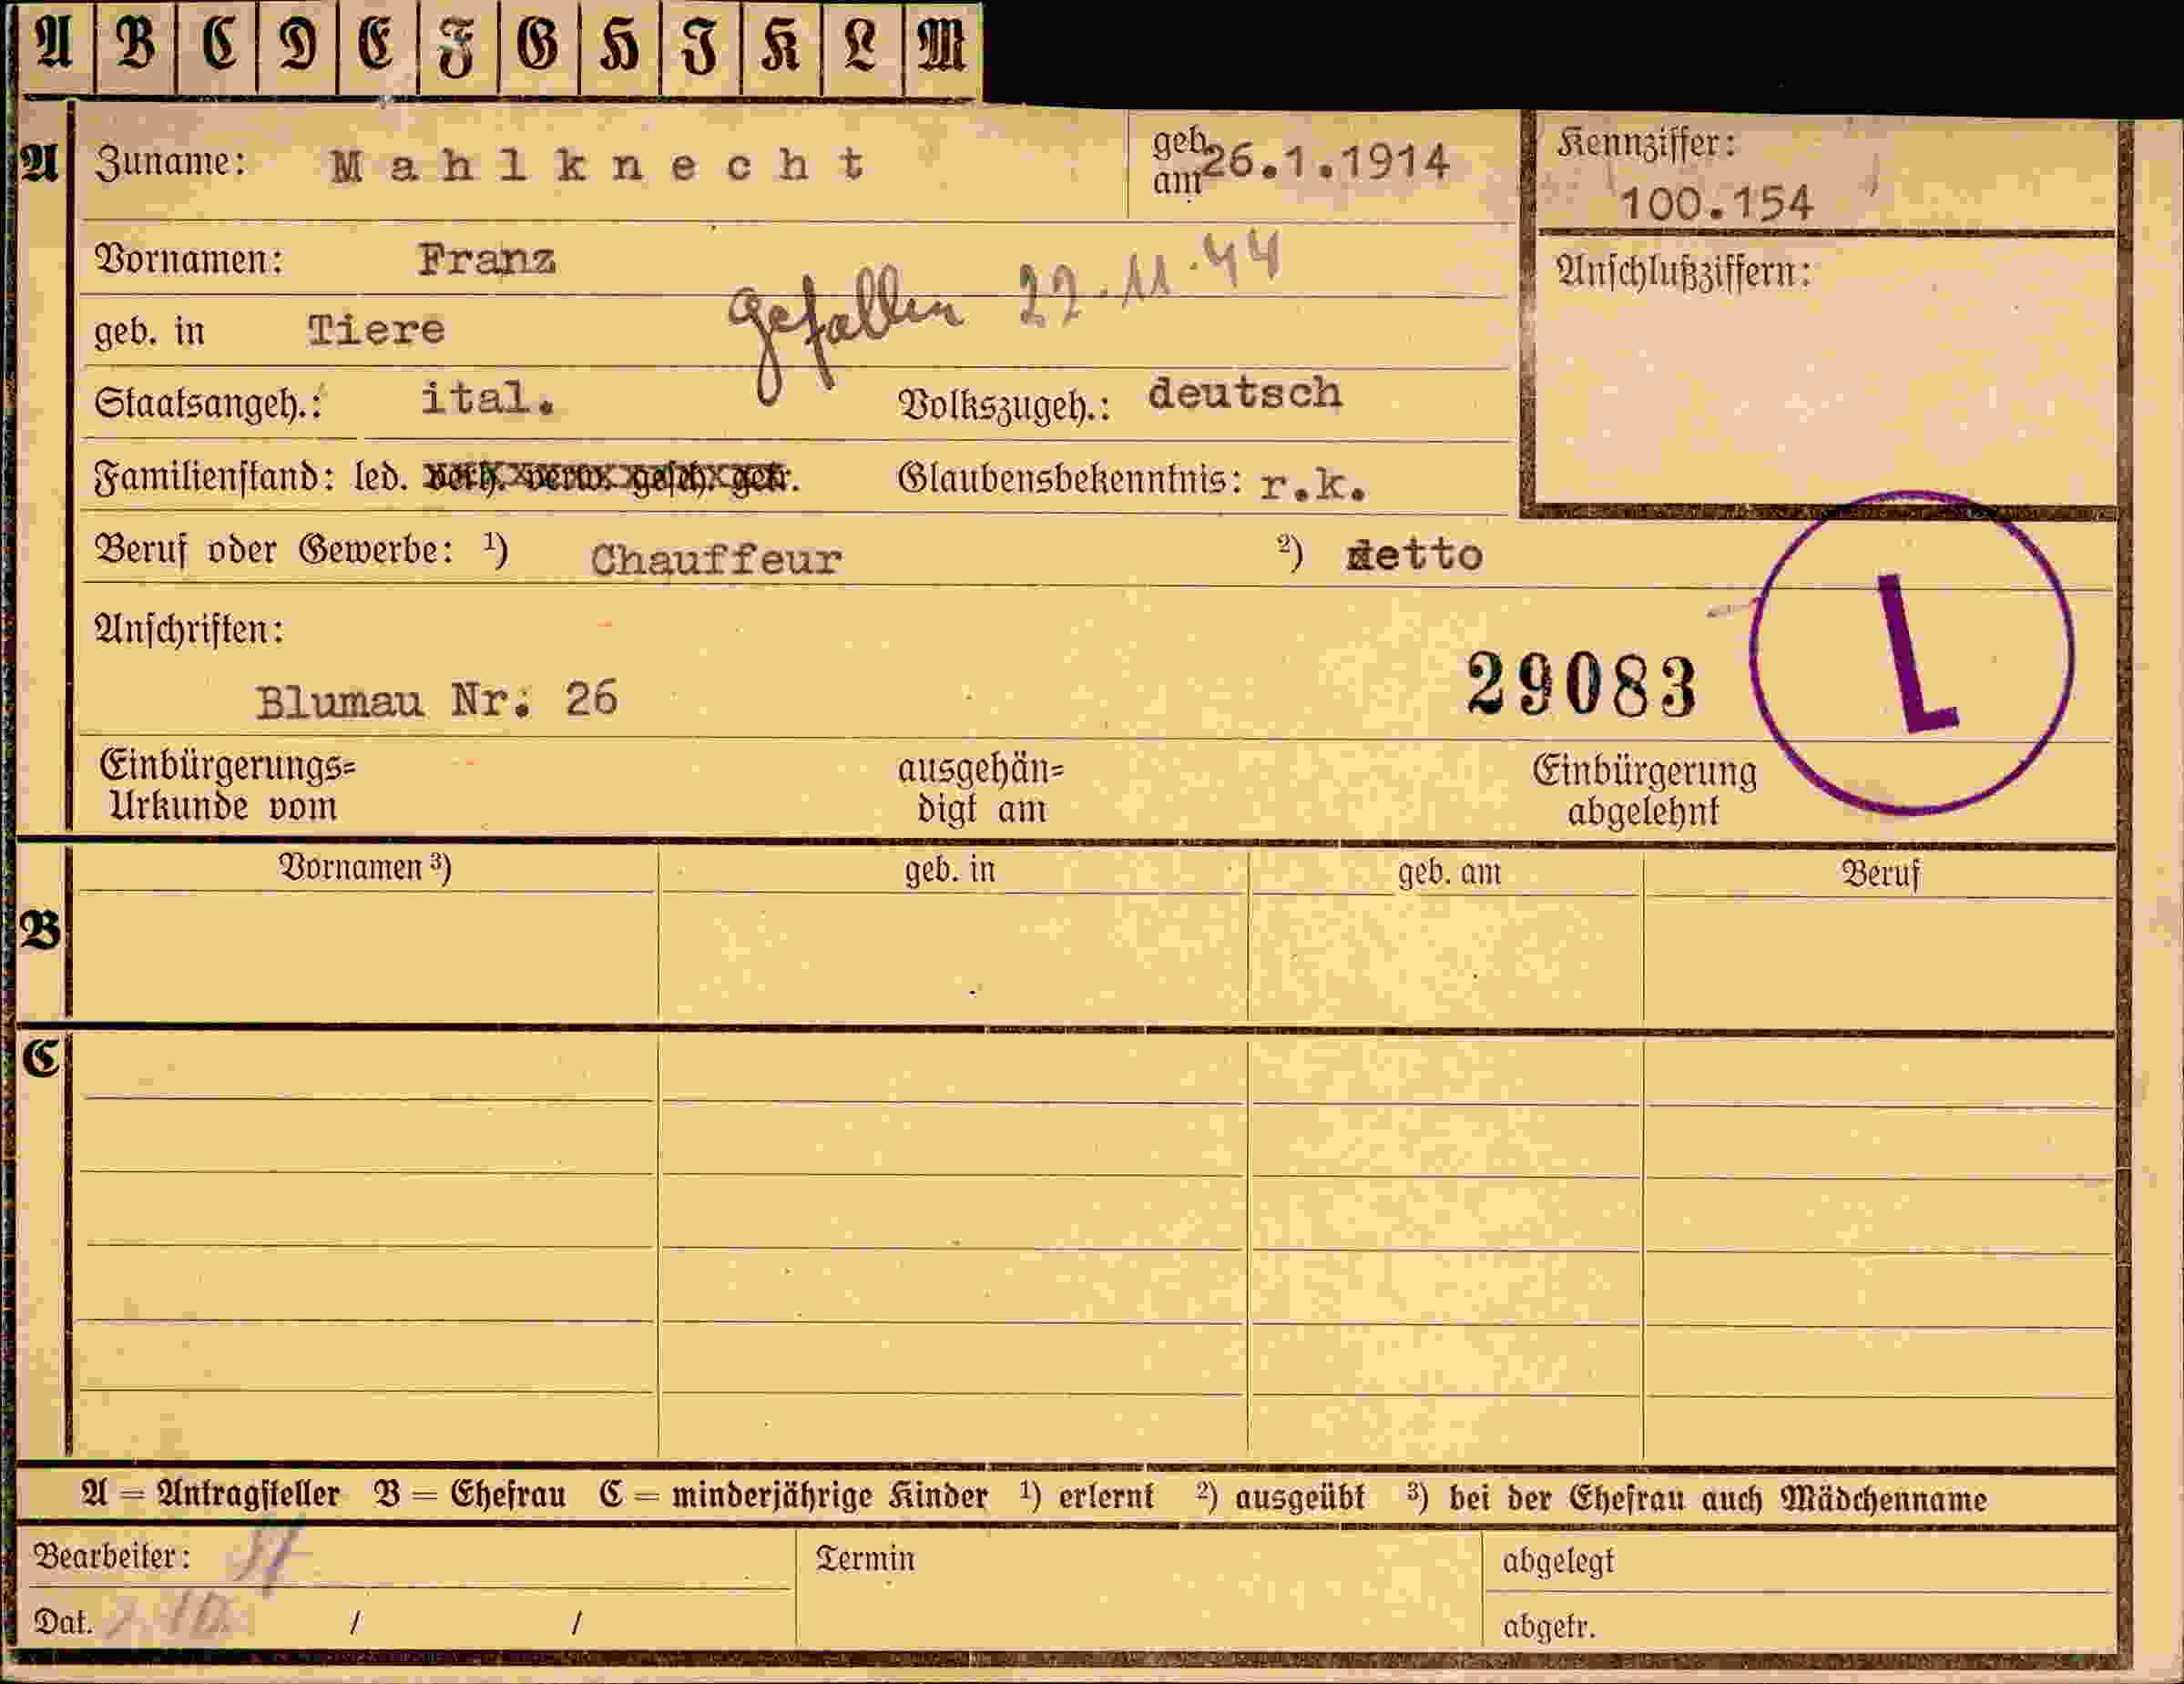 A B C D E F G H J K L M
A Zuname: Mahlknecht geb. am 26.1.1914 Kennziffer:
100.154
Vornamen: Franz
gefallen 22.11.44 Anschlußziffern:
geb. in Tiere
Staatsangeh.: ital. Volkszugeh.: deutsch
Familienstand: led. verh. verw. gesch. getr. Glaubensbekenntnis: r.k.
Beruf oder Gewerbe: ¹) Chauffeur ²) detto
L
Anschriften:
29083
Blumau Nr: 26
Einbürgerungs= ausgehän= Einbürgerung
Urkunde vom digt am abgelehnt
Vornamen ³) geb. in geb. am Beruf
B
C
A = Antragsteller B = Ehefrau C = minderjährige Kinder ¹) erlernt ²) ausgeübt ³) bei der Ehefrau auch Mädchenname
Bearbeiter: Termin abgelegt
Dat. / / abgetr.